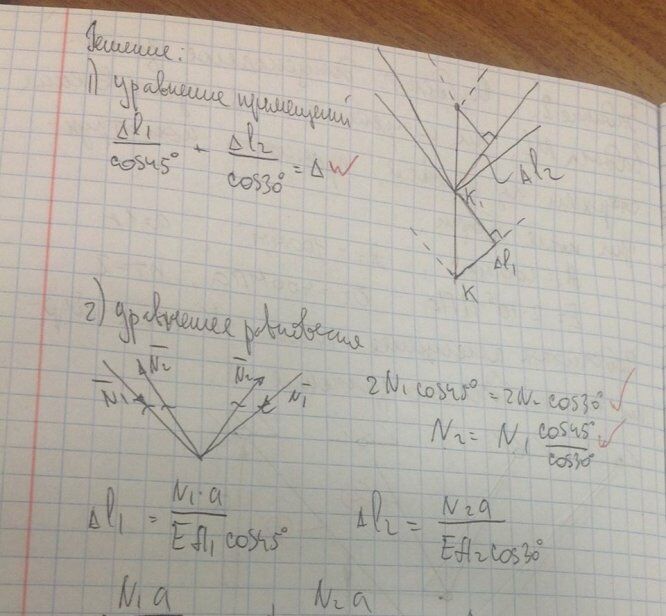 Решение:
1) уравнение перемещений
Δl₁/cos45° + Δl₂/cos30° = Δ
Δl₂
K₁
Δl₁
K
2) уравнение равновесия
N̅₁ N̅₂ N̅₂ N̅₁
2N₁cos45° = 2N₂cos30°
N₂ = N₁ cos45°/cos30°
Δl₁ = N₁·a/EA₁cos45° Δl₂ = N₂a/EA₂cos30°
N₁a N₂a